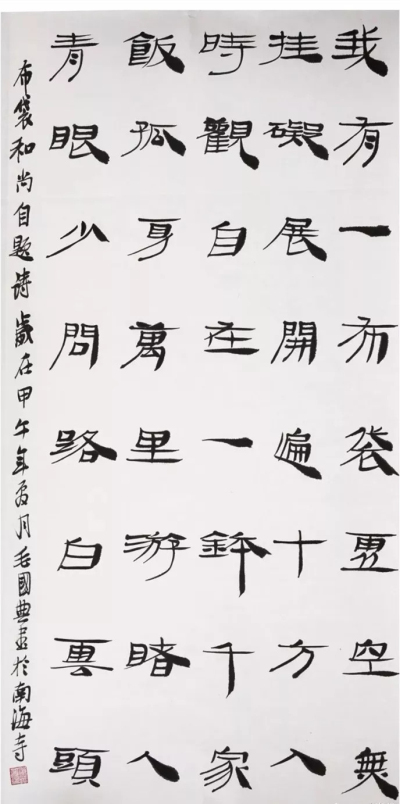 我有一布袋虛空無
挂礙展開遍十方入
時觀自在一鉢千家
飯孤身萬里游睹人
青眼少問路白雲頭
布袋和尚自題詩歲在甲午年夏月毛國典書於南海寺